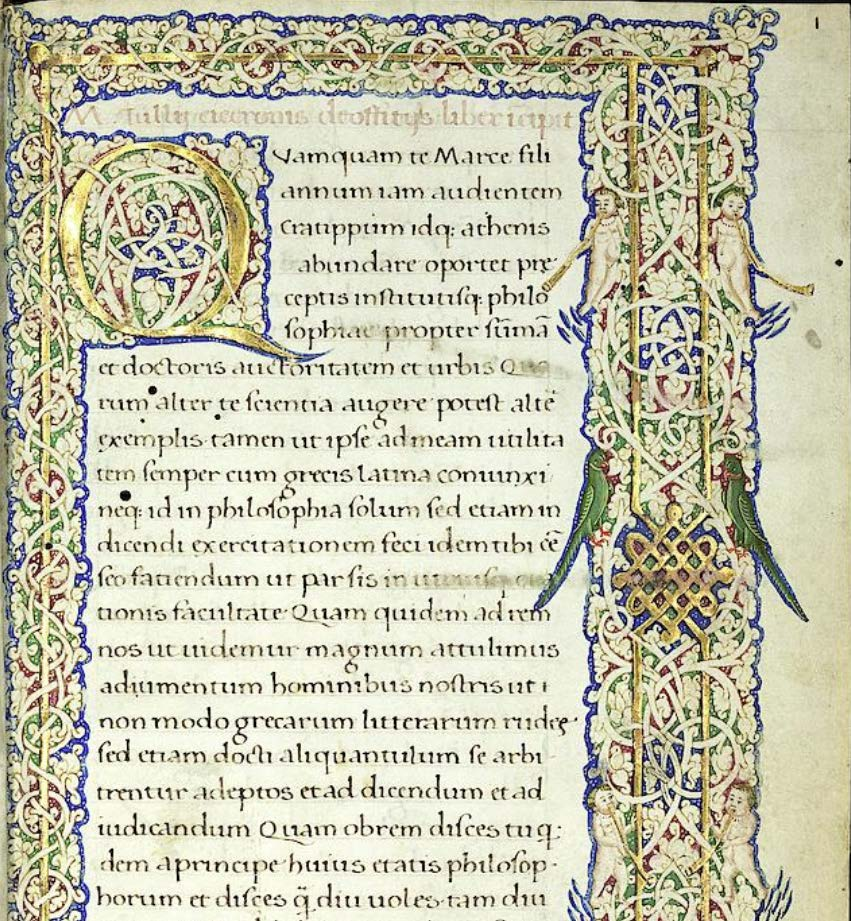 1
M. Tullij ciceronis de offitijs liber icipit
Vamquam te Marce fili
annum iam audientem
Cratippum idq; athenis
abundare oportet prę
ceptis institutisq; philo
sophiae propter sũmã
et doctoris auctoritatem et urbis Quo
rum alter te scientia augere potest altẽ
exemplis tamen ut ipse ad meam utilita
tem semper cum grecis latina coniunxi
neq; id in philosophia solum sed etiam in
dicendi exercitationem feci idem tibi cẽ
seo fatiendum ut par sis in
tionis facultate Quam quidem ad rem
nos ut uidemur magnum attulimus
adiumentum hominibus nostris ut
non modo grecarum litterarum rudes
sed etiam docti aliquantulum se arbi
trentur adeptos et ad dicendum et ad
iudicandum Quam obrem disces tu q;
dem a principe huius etatis philosop
horum et disces q̃ diu uoles tam diu